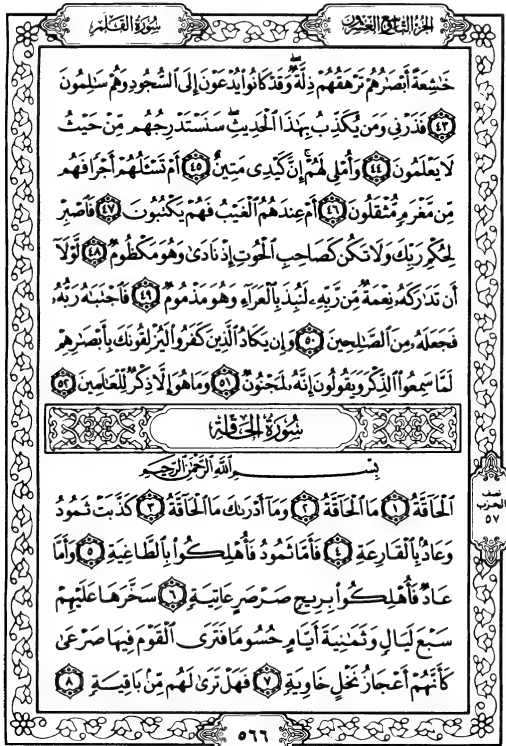 سُورَةُ القَلَمِ
الجُزْءُ التَّاسِعُ وَالعِشْرُونَ
خَٰشِعَةً أَبْصَٰرُهُمْ تَرْهَقُهُمْ ذِلَّةٌ ۖ وَقَدْ كَانُوا۟ يُدْعَوْنَ إِلَى ٱلسُّجُودِ وَهُمْ سَٰلِمُونَ
٤٣ فَذَرْنِى وَمَن يُكَذِّبُ بِهَٰذَا ٱلْحَدِيثِ ۖ سَنَسْتَدْرِجُهُم مِّنْ حَيْثُ
لَا يَعْلَمُونَ ٤٤ وَأُمْلِى لَهُمْ ۚ إِنَّ كَيْدِى مَتِينٌ ٤٥ أَمْ تَسْـَٔلُهُمْ أَجْرًا فَهُم
مِّن مَّغْرَمٍ مُّثْقَلُونَ ٤٦ أَمْ عِندَهُمُ ٱلْغَيْبُ فَهُمْ يَكْتُبُونَ ٤٧ فَٱصْبِرْ
لِحُكْمِ رَبِّكَ وَلَا تَكُن كَصَاحِبِ ٱلْحُوتِ إِذْ نَادَىٰ وَهُوَ مَكْظُومٌ ٤٨ لَّوْلَآ
أَن تَدَٰرَكَهُۥ نِعْمَةٌ مِّن رَّبِّهِۦ لَنُبِذَ بِٱلْعَرَآءِ وَهُوَ مَذْمُومٌ ٤٩ فَٱجْتَبَٰهُ رَبُّهُۥ
فَجَعَلَهُۥ مِنَ ٱلصَّٰلِحِينَ ٥٠ وَإِن يَكَادُ ٱلَّذِينَ كَفَرُوا۟ لَيُزْلِقُونَكَ بِأَبْصَٰرِهِمْ
لَمَّا سَمِعُوا۟ ٱلذِّكْرَ وَيَقُولُونَ إِنَّهُۥ لَمَجْنُونٌ ٥١ وَمَا هُوَ إِلَّا ذِكْرٌ لِّلْعَٰلَمِينَ ٥٢
سُورَةُ الحَاقَّةِ
بِسْمِ ٱللَّهِ ٱلرَّحْمَٰنِ ٱلرَّحِيمِ
ٱلْحَآقَّةُ ١ مَا ٱلْحَآقَّةُ ٢ وَمَآ أَدْرَىٰكَ مَا ٱلْحَآقَّةُ ٣ كَذَّبَتْ ثَمُودُ
وَعَادٌۢ بِٱلْقَارِعَةِ ٤ فَأَمَّا ثَمُودُ فَأُهْلِكُوا۟ بِٱلطَّاغِيَةِ ٥ وَأَمَّا
عَادٌ فَأُهْلِكُوا۟ بِرِيحٍ صَرْصَرٍ عَاتِيَةٍ ٦ سَخَّرَهَا عَلَيْهِمْ
سَبْعَ لَيَالٍ وَثَمَٰنِيَةَ أَيَّامٍ حُسُومًا فَتَرَى ٱلْقَوْمَ فِيهَا صَرْعَىٰ
كَأَنَّهُمْ أَعْجَازُ نَخْلٍ خَاوِيَةٍ ٧ فَهَلْ تَرَىٰ لَهُم مِّنۢ بَاقِيَةٍ ٨
نصف
الحزب
٥٧
٥٦٦